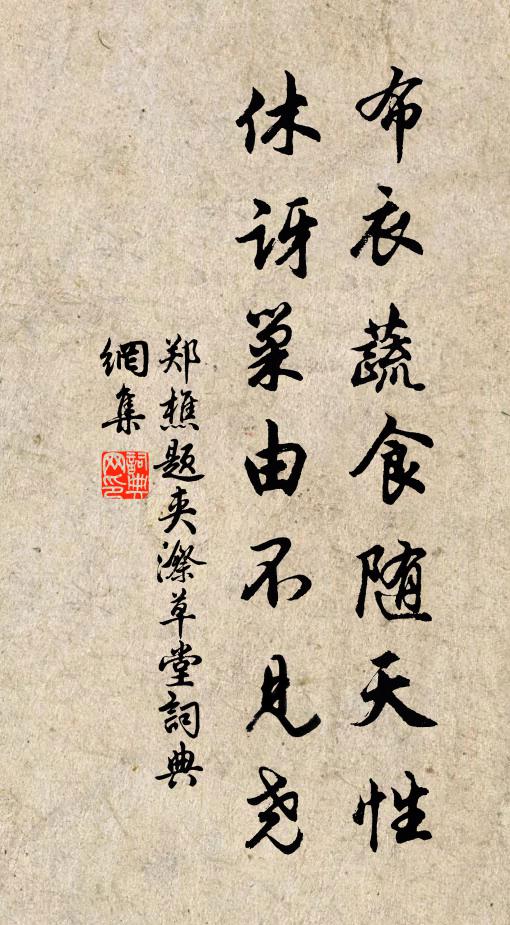 布衣蔬食随天性
休讶巢由不见尧
郑樵题夹漈草堂詞典
網集
詞典
网印